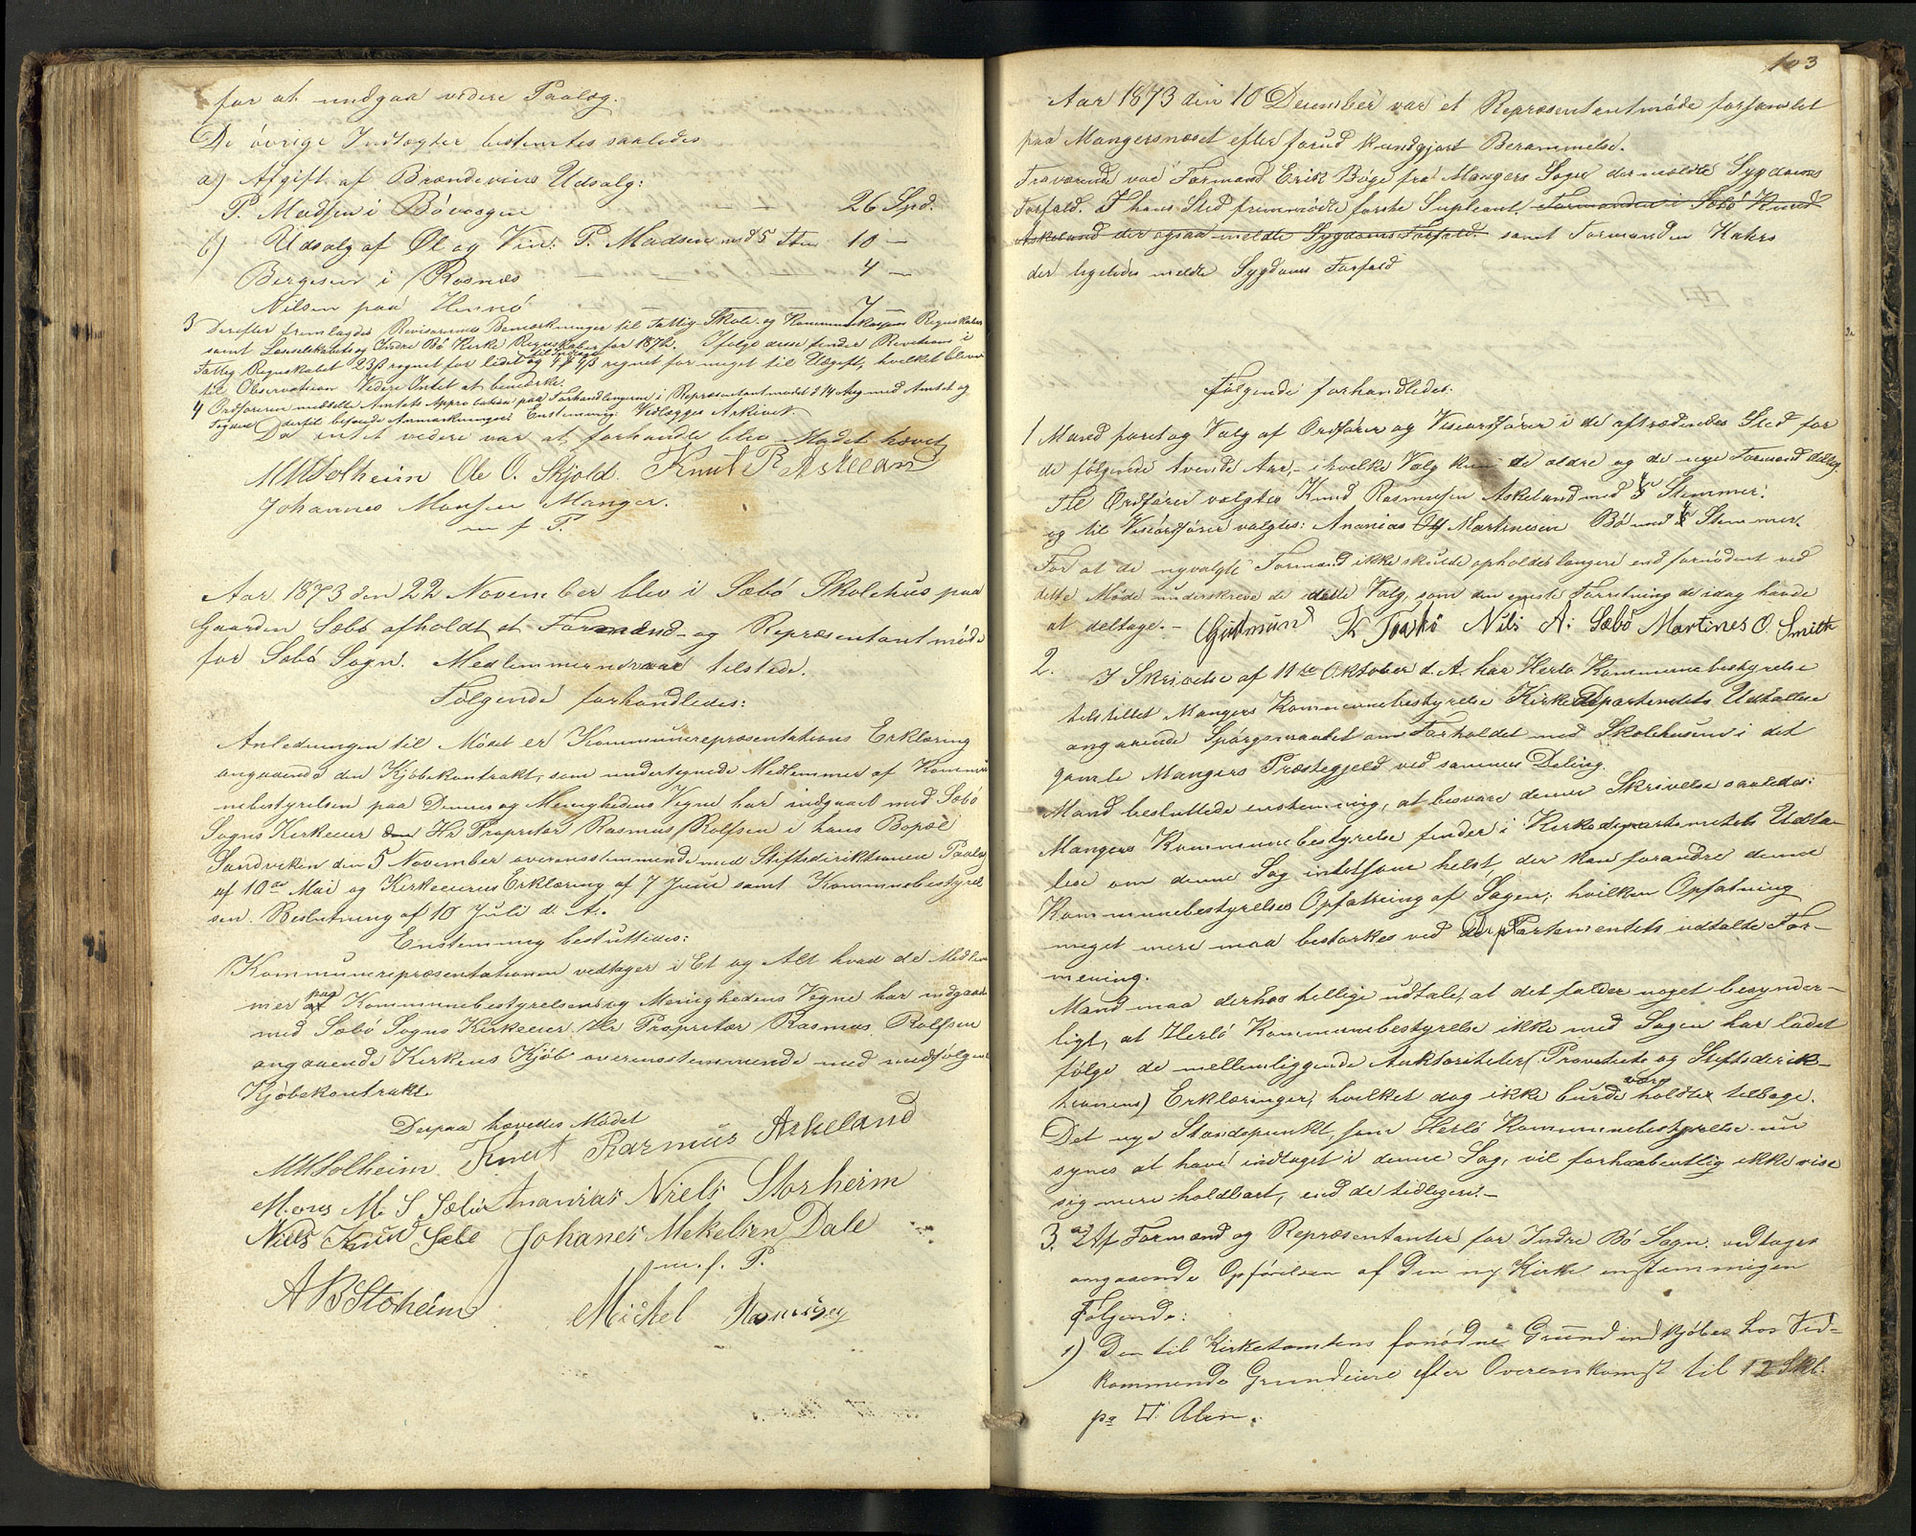 for at undgaa videre Paalæg.
De øvrige Indtægter bestemtes saaledes
a) Afgift af Brændevins Udsalg:
P. Madsen i Bövaagen 26 Spd.
b) Udsalg af Øl og Vin: P. Madsen med 5 10 —
Bergesen i Rosnæs — 4 —
Nilsen paa Hernö — 7
3 Derefter fremlagdes Revisorernes Bemærkninger til Fattig- Skole- og Kommunekassens Regnskaber
samt og Indre Bö Kirke Regnskaber for 1872. Ifølge disse finder Revisionen i
Fattig Regnskabet 23ß regnet for lidet til Indtægt og regnet for meget til Udgift, hvilket bliver
til Observation. Videre Intet at bemærke.
4 Ordføreren meddelte Amtets Approbation paa Forhandlingerne i Repræsentantmødet d 14 Aug med Amtet og
Fogdens dertil beföiede Anmærkninger. Enstemmig: Vidlægges Arkivet
Da intet videre var at forhandle blev Mødet hævet
MMSolheim Ole O. Skjold. Knut R Askeland
Johannes Monsen Manger.
m f P.
Aar 1873 den 22 November blev i Sæbö Skolehus paa
Gaarden Sæbö afholdt et Formænd- og Repræsentantmöde
for Sæbö Sogn. Medlemmerne var tilstede.
Følgende forhandledes:
Anledningen til Mödet er Kommunerepræsentationens Erklæring
angaaende den Kjöbekontrakt, som undertegnede Medlemmer af Kommu-
nebestyrelsen paa Dennes og Menighedens Vegne har indgaaet med Sæbö
Sogns Kirkeeier Hr Propritær Rasmus Rolfsen i hans Bopæl
Sandviken den 5 November overensstemmende med Stiftsdirektionens Paalæg
af 10de Mai og Kirkeeierens Erklæring af 7 Juni samt Kommunebestyrel
sen. Beslutning af 10 Juli d. A.
Enstemmig besluttedes:
Kommunerepræsentationen vedtager i Et og Alt hvad de Medlem
mer paa Kommunebestyrelsens og Menighedens Vegne har indgaaet
med Sæbö Sogns Kirkeeier Hr Propritær Rasmus Rolfsen
angaaende Kirkens Kjöb overensstemmende med medfølgende
Kjøbekontrakt.
Derpaa hævedes Mödet
MMSolheim. Knut Rasmus Askeland
Mons M. S Sæbö Ananias Niels Storheim
Niels Knud Sæbö Johanes Mekelsen Dale
m. f. P.
A B Stoheim Mickel
103
Aar 1873 den 10 December var et Repræsentantmøde forsamlet
paa Mangersnæset efter forud kundgjort Berammelse.
Fraværende var Formand Erik Böge fra Mangers Sogn der meldte Sygdoms
Forfald. I hans Sted fremmødte første Supleant. Formanden i Sæbö Knud
Askeland der ogsaa meldte Sygdoms Forfald. samt Formanden
der ligeledes meldte Sygdoms Forfald
Følgende forhandledes:
1 Mand foretog Valg af Ordfører og Viseordfører i de aftrædendes Sted for
de følgende tvende Aar, – i hvilke Valg kun de ældre og de nye Formænd deltog.
Til Ordfører valgtes Knud Rasmussen Askeland med Stemmer:
og til Viseordfører valgtes: Ananias Martinesen Bö med Stemmer.
For at de nyvalgte Formænd ikke skulde opholdes længere end fornødent ved
dette Møde underskreve de dette Valg, som den eneste Forretning de idag havde
at deltage. – Nils A: Sæbö Martines O. Smith
2. I Skrivelse af 11te Oktober d. A. har Herlø Kommunebestyrelse
tilstillet Mangers Kommunebestyrelse Kirkedepartementets Udtalelse
angaaende Spørgsmaalet om Forholdet med Skolehusene i det
gamle Mangers Præstegjeld ved sammes Deling.
Mand besluttede enstemmig, at besvare denne Skrivelse saaledes:
Mangers Kommunebestyrelse finder i Kirkedepartementets Udta-
lese om denne Sag intetsom helst, der kan forandre denne
Kommunebestyrelses Opfatning af Sagen; hvilken Opfatning
meget mere maa bestærkes ved Departementets udtalte For-
mening.
Mand maa derhos tillige udtale, at det falder noget besynder-
ligt, at Herlö Kommunebestyrelse ikke med Sagen har ladet
følge de mellemliggende Auktoriteter (Provstiets og Stiftsdirek-
tionens) Erklæringer, hvilket dog ikke burde være holdte tilbage.
Det nye Standspunkt, som Herlö Kommunebestyrelse nu
synes at have indtaget i denne Sag, vil forhaabentlig ikke vise
sig mere holdbart, end de tidligere. –
3. a Af Formænd og Repræsentanter for Indre Bö Sogn vedtoges
angaaende Opførelsen af den ny Kirke enstemmigen
Følgende:
1) Den til Kirketomtens fornødne Grund indkjøbes hos Ved-
kommende Grundeiere efter Overenskomst til 12 Skl.
pr □ Alen.